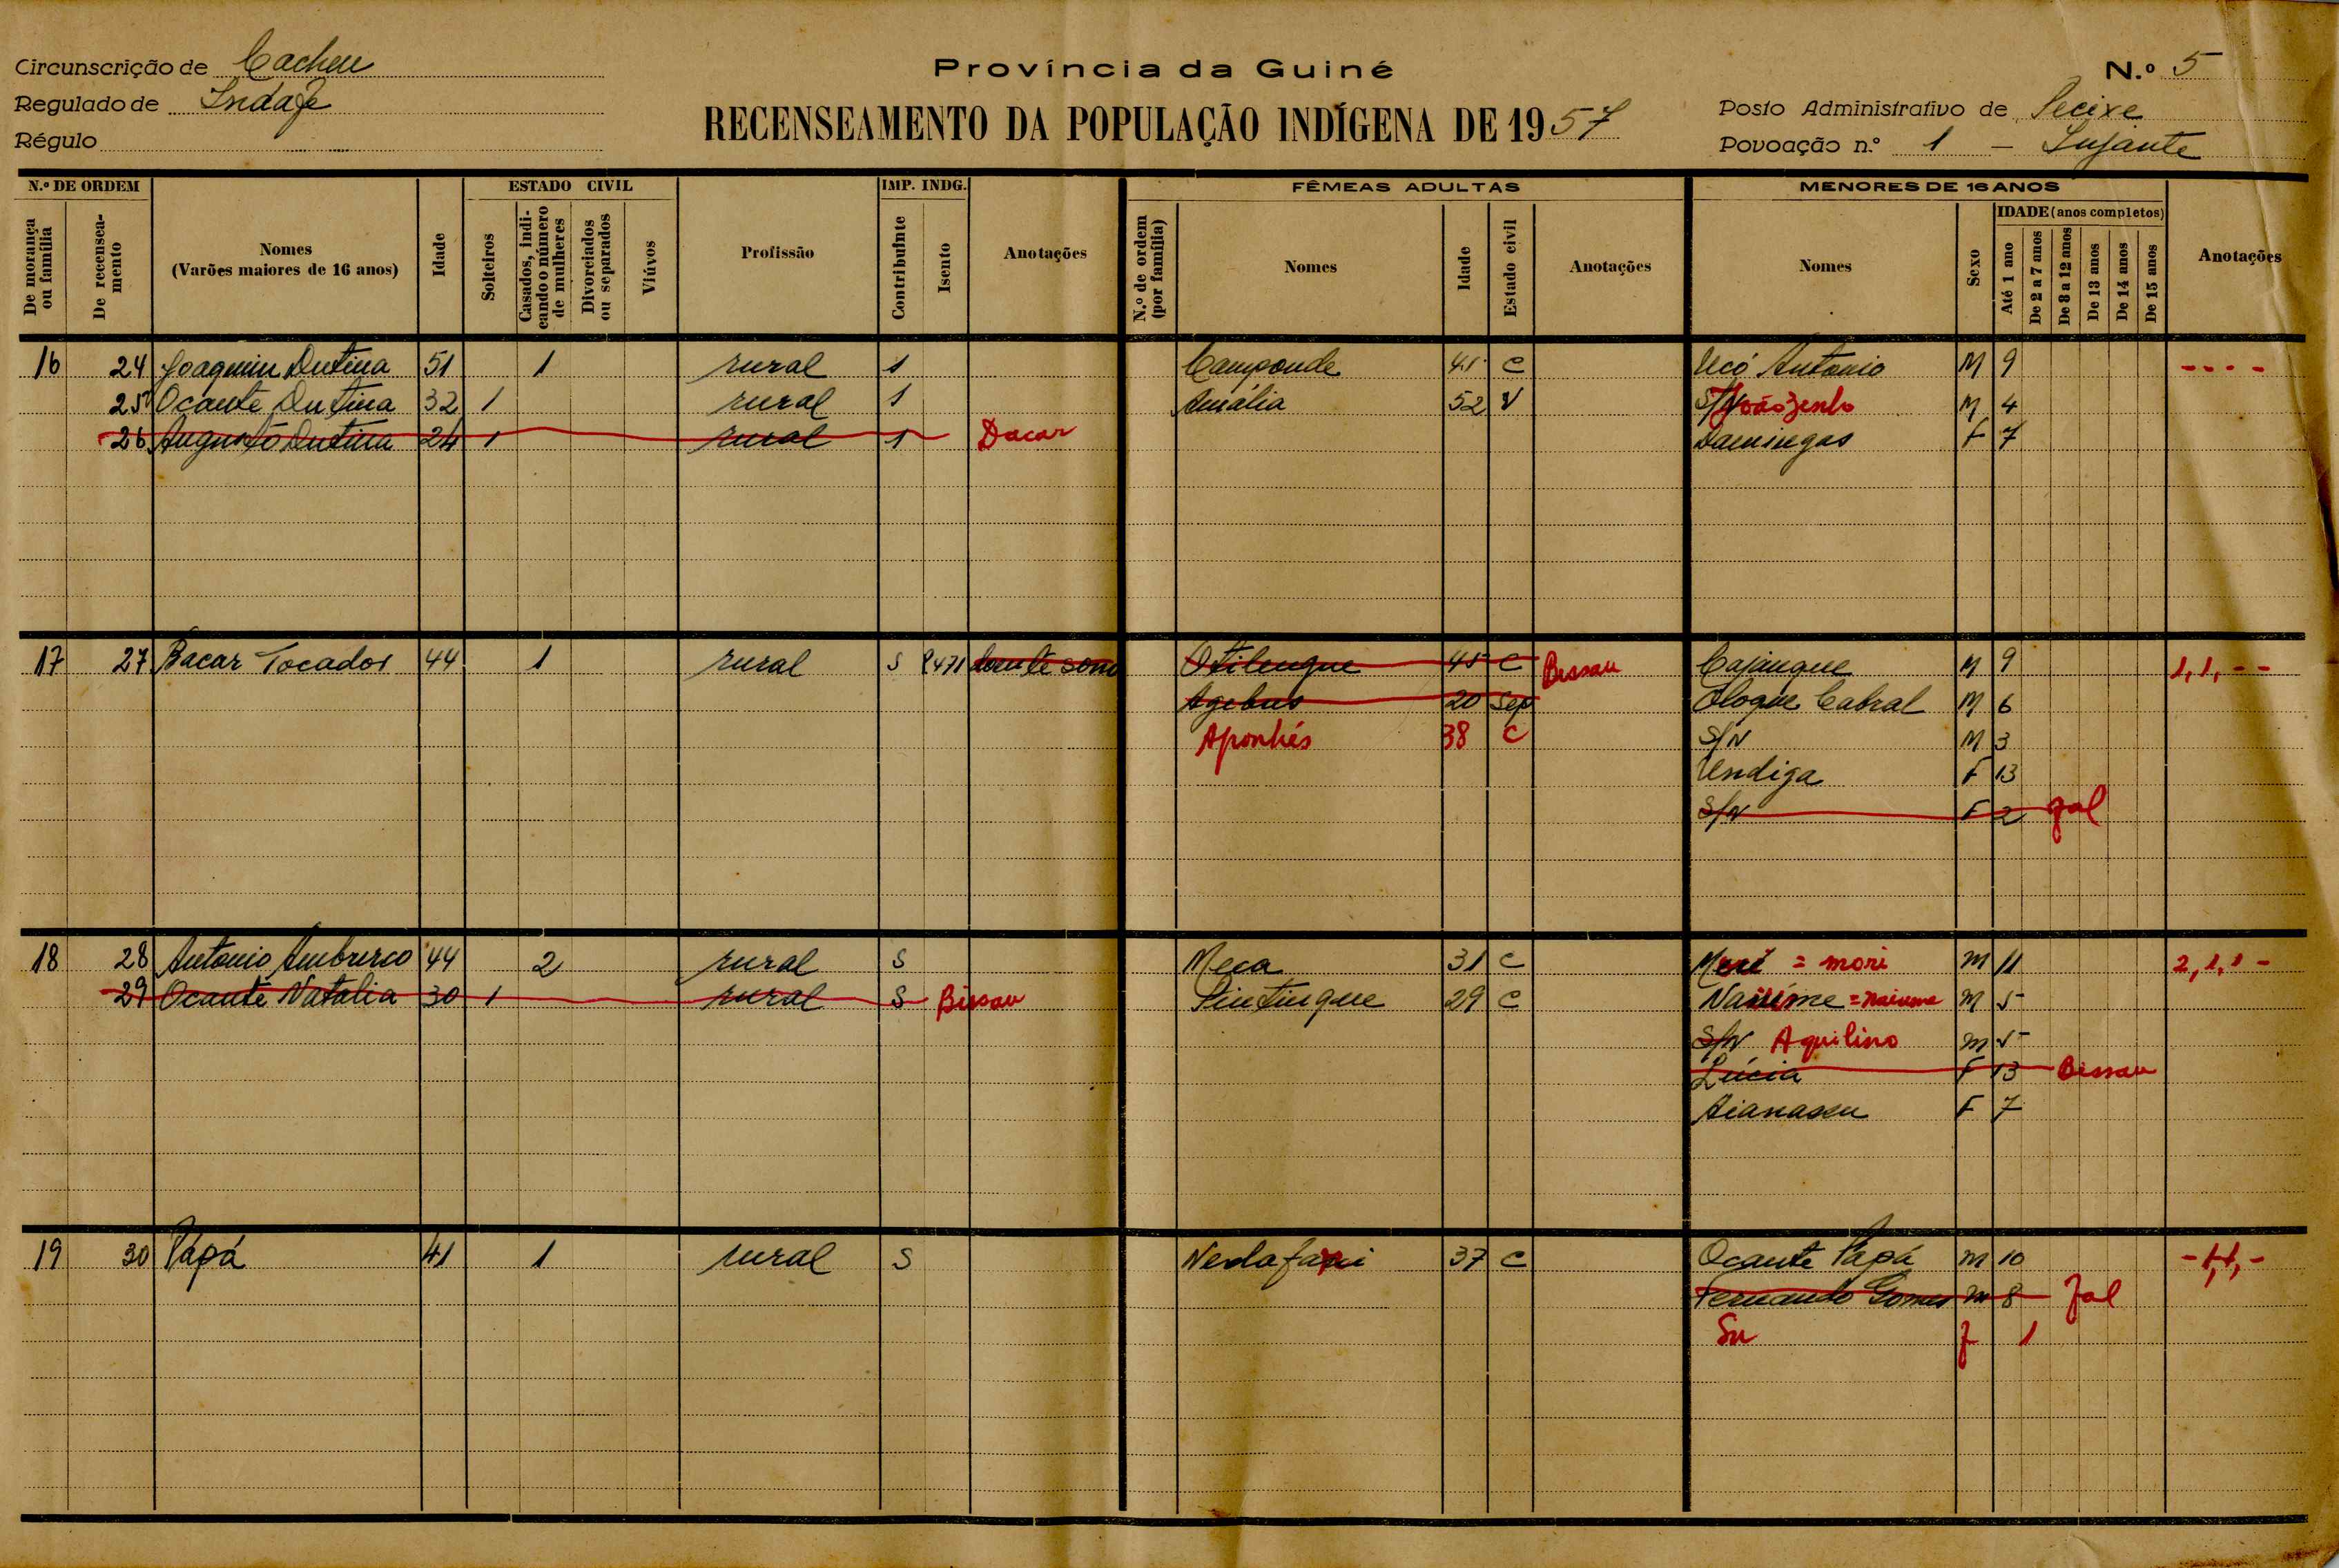 Circunscrição de Cacheu
Regulado de
Régulo
Província da Guiné
RECENSEAMENTO DA POPULAÇÃO INDÍGENA DE 1957
N.º 5
Posto Administrativo de Pecixe
Povoação n.º 1 –
N.º DE ORDEM
De morança ou família
De recenseamento
Nomes
(Varões maiores de 16 anos)
Idade
ESTADO CIVIL
Solteiros
Casados, indicando o número de mulheres
Divorciados ou separados
Viúvos
Profissão
IMP. INDG.
Contribuinte
Isento
Anotações
FÊMEAS ADULTAS
N.º de ordem (por família)
Nomes
Idade
Estado civil
Anotações
MENORES DE 16 ANOS
Nomes
Sexo
IDADE (anos completos)
Até 1 ano
De 2 a 7 anos
De 8 a 12 anos
De 13 anos
De 14 anos
De 15 anos
Anotações
16 24 Joaquim Dutina 51 1 rural 1 Camponde 41 C Ucó Antonio M 9 - - - -
25 Ocante Dutina 32 1 rural 1 Amália 52 V S/N João M 4
26 Augusto Dutina 24 1 rural 1 Dacar Domingas F 7
17 27 Bacar Tocador 44 1 rural S 8471 Otilengue 45 C Bissau Cajangue M 9 1, 1, - -
20 Sep Ologue Cabral M 6
Aponhés 38 C S/N M 3
Undiga F 13
S/N F 2 fal
18 28 Antonio 44 2 rural S Meca 31 C = mori M 11 2, 1, 1 -
29 Ocante Natalia 30 1 rural S Bissau Pintingue 29 C = naiume M 5
S/N Aquilino M 5
Lúcia F 13 Bissau
F 7
19 30 Papá 41 1 rural S 37 C Ocante Papá M 10
Fernando Gomes M 8 fal
Sn f 1